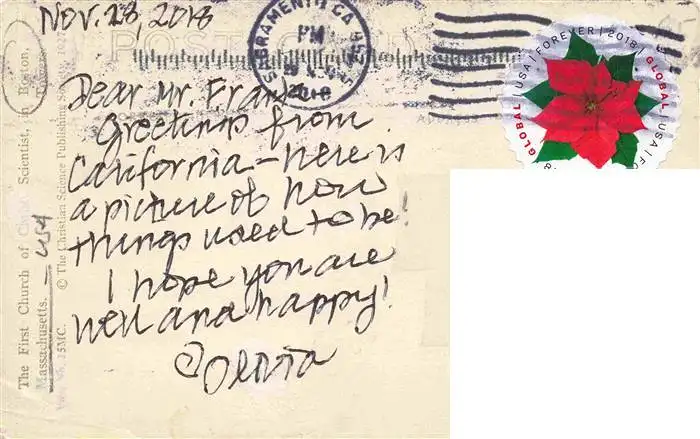 Nov. 28, 2018
POST CARD
SACRAMENTO CA
PM
2018
GLOBAL | USA | FOREVER | 2018 | GLOBAL | USA |
Dear Mr. Frank,
Greetings from
California – here is
a picture of how
things used to be!
I hope you are
well and happy!
Olivia
The First Church of Christ Scientist, in Boston,
Massachusetts. – USA
© The Christian Science Publishing Society